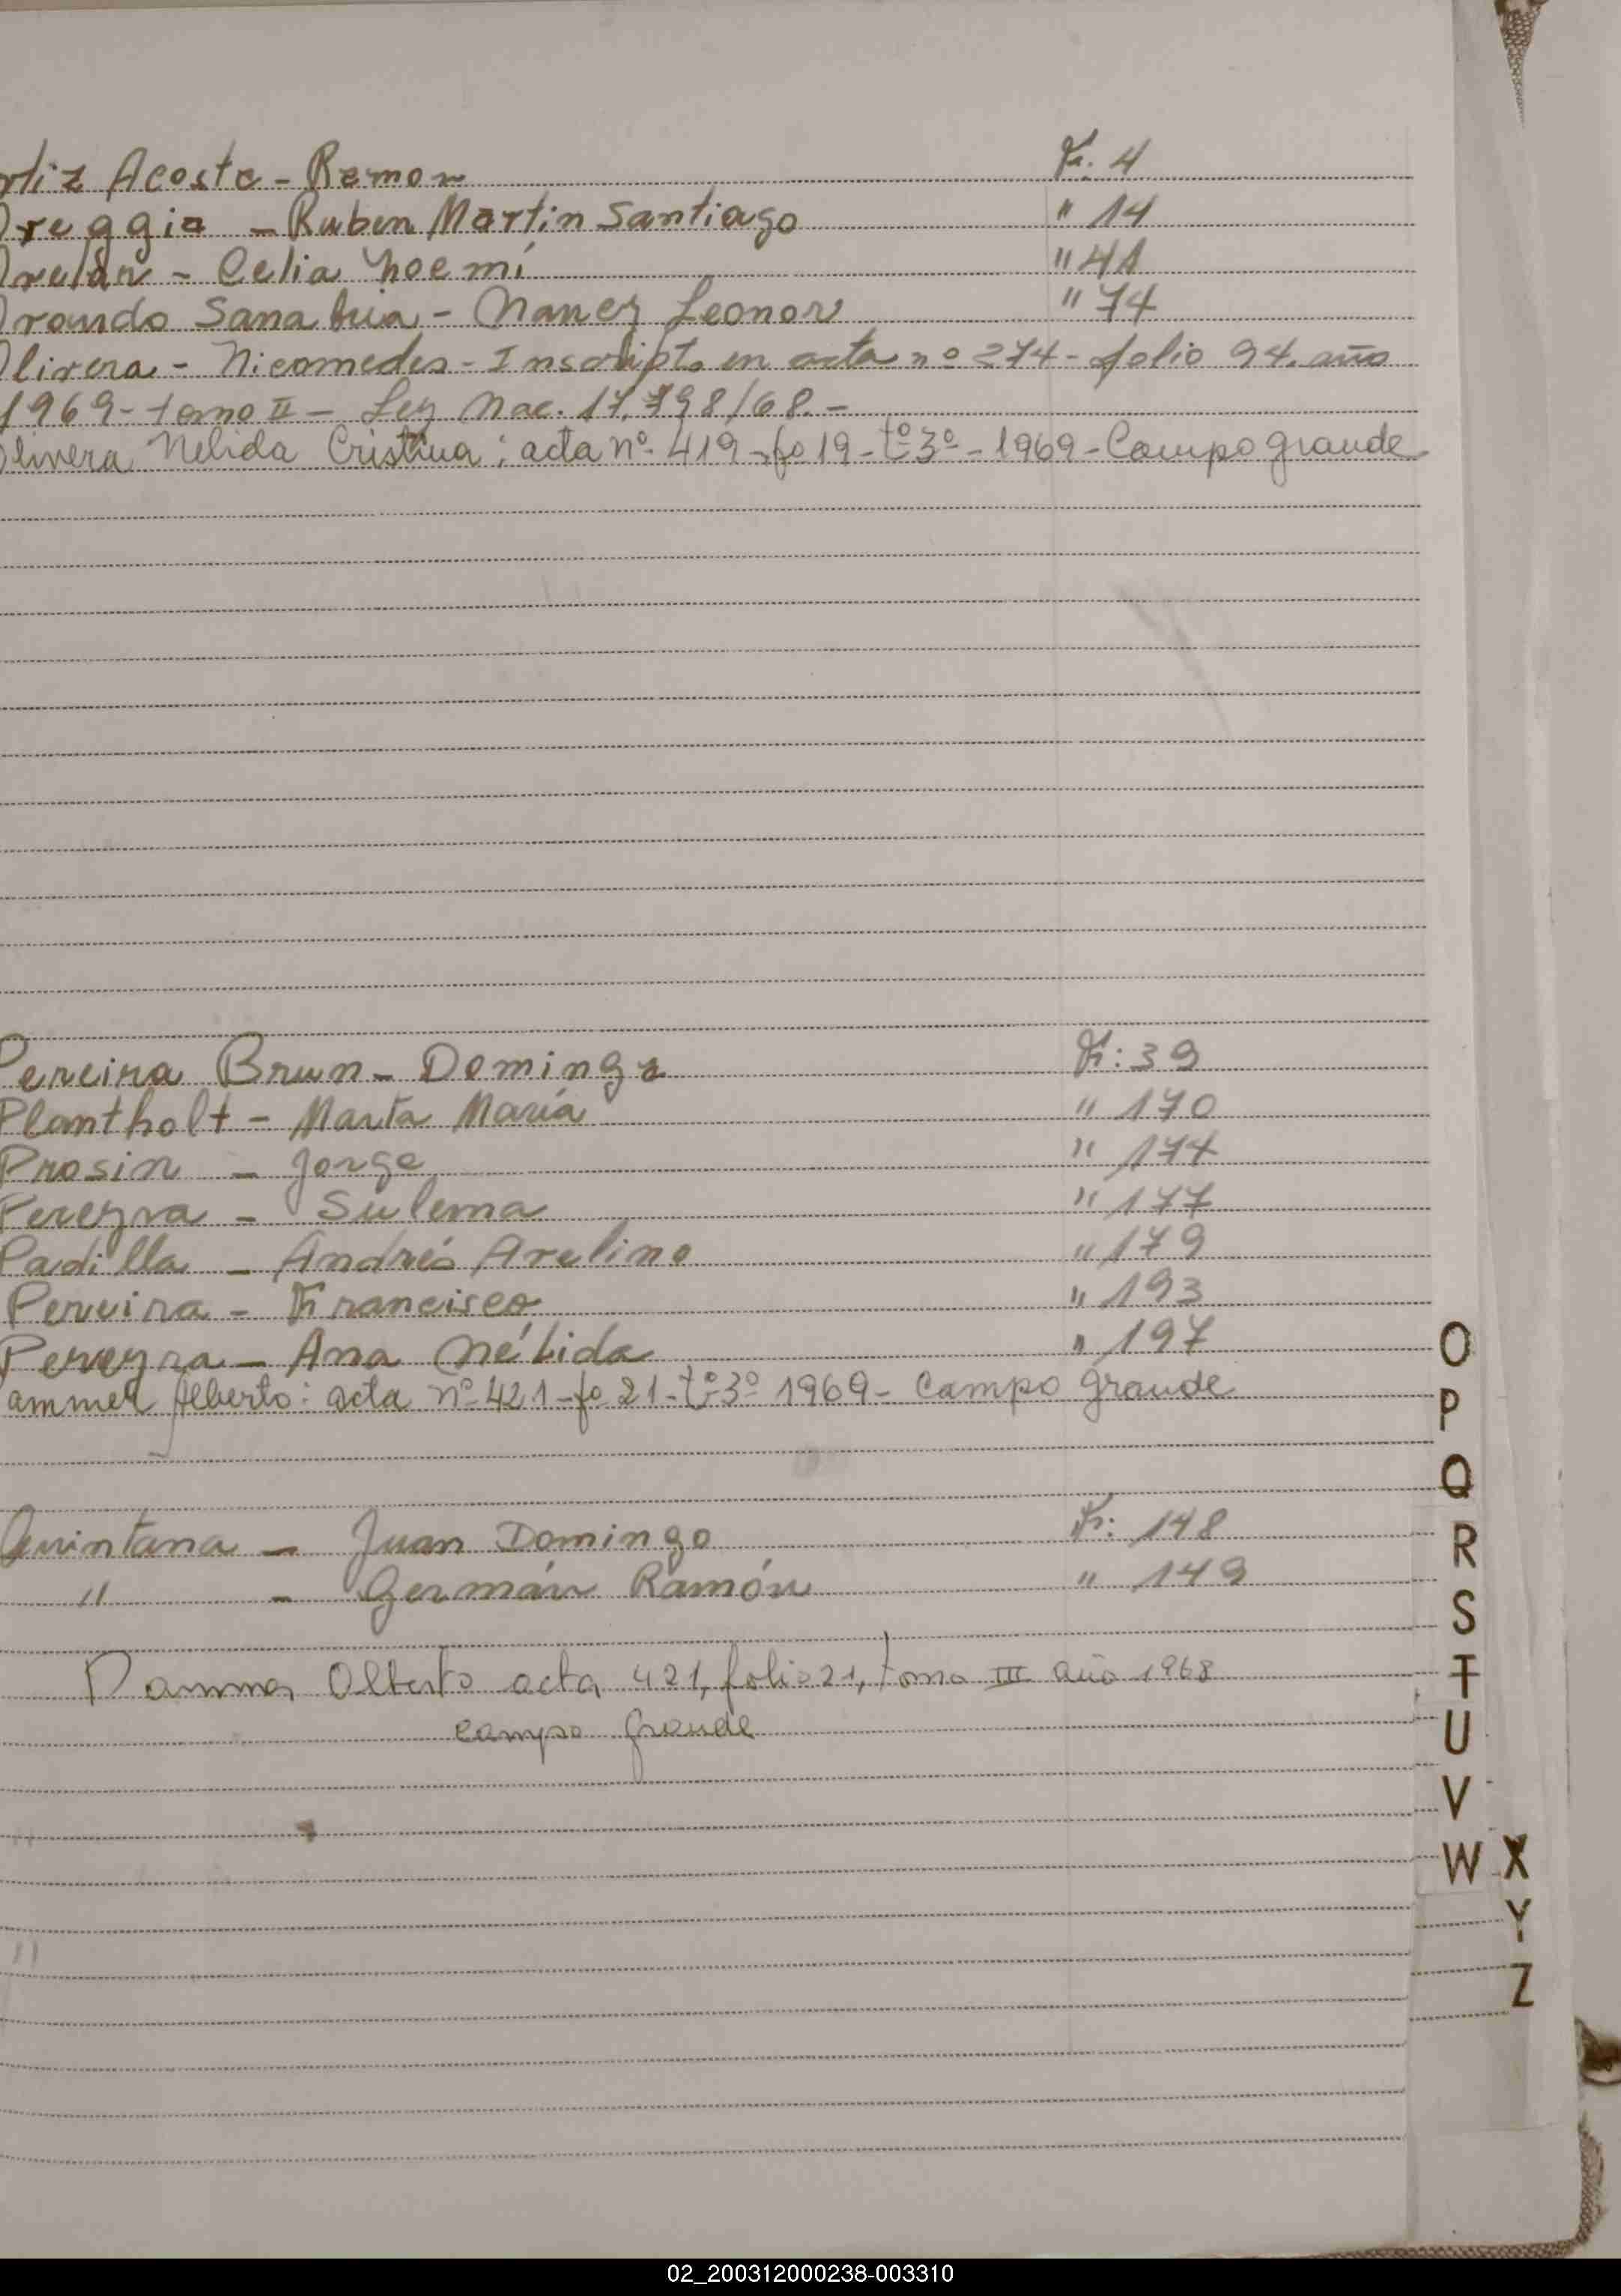 rtiz Acosta - Ramon F. 4
Oreggia - Ruben Martin Santiago " 14
Orelan - Celia Noemí " 41
Orondo Sanabria - Nancy Leonor " 74
Olivera - Nicomedes - Inscripto en acta nº 274 - folio 94. año
1969 - tomo II - Ley Nac. 17.798/68. -
Olivera Nelida Cristina: acta nº 419 - fº 19 - tº 3º - 1969 - Campo grande
Pereira Brun - Domingo F: 39
Plantholt - Marta María " 170
Prosin - Jorge " 174
Pereyra - Sulema " 177
Padilla - Andrés Avelino " 179
Pereira - Francisco " 193
Pereyra - Ana Nélida " 197
ammer Alberto: acta nº 421 - fº 21 - tº 3º 1969 - Campo grande
Quintana - Juan Domingo F: 148
" - Germán Ramón " 149
Dammer Alberto acta 421, folio 21, tomo III año 1968
campo grande
O
P
Q
R
S
T
U
V
W X
Y
Z
02_200312000238-003310